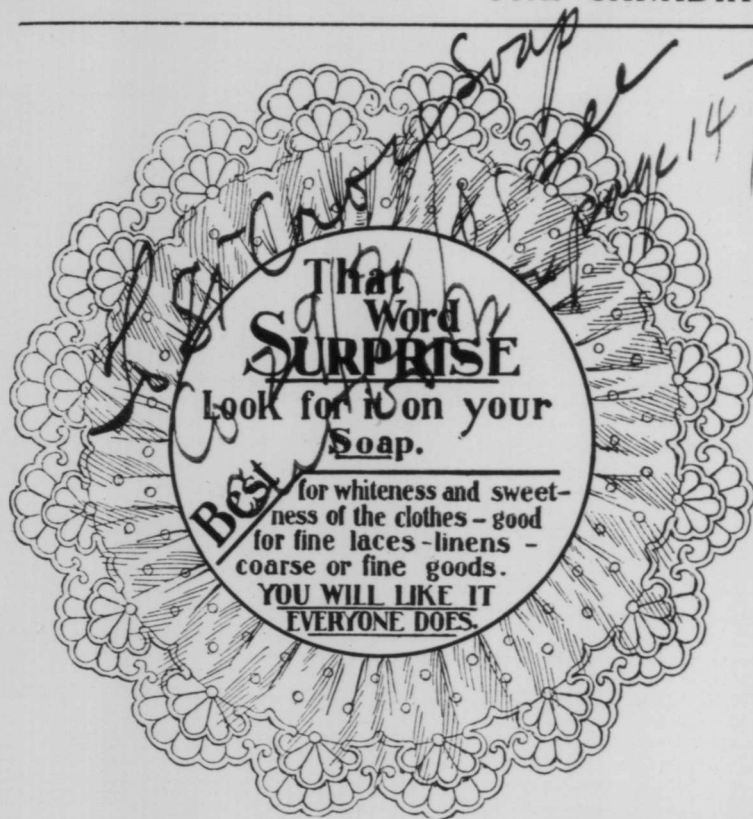 Soap
St Croix
See
page 14
That
Word
SURPRISE
Look for it on your
Soap.
Best
for whiteness and sweet-
ness of the clothes – good
for fine laces - linens –
coarse or fine goods.
YOU WILL LIKE IT
EVERYONE DOES.